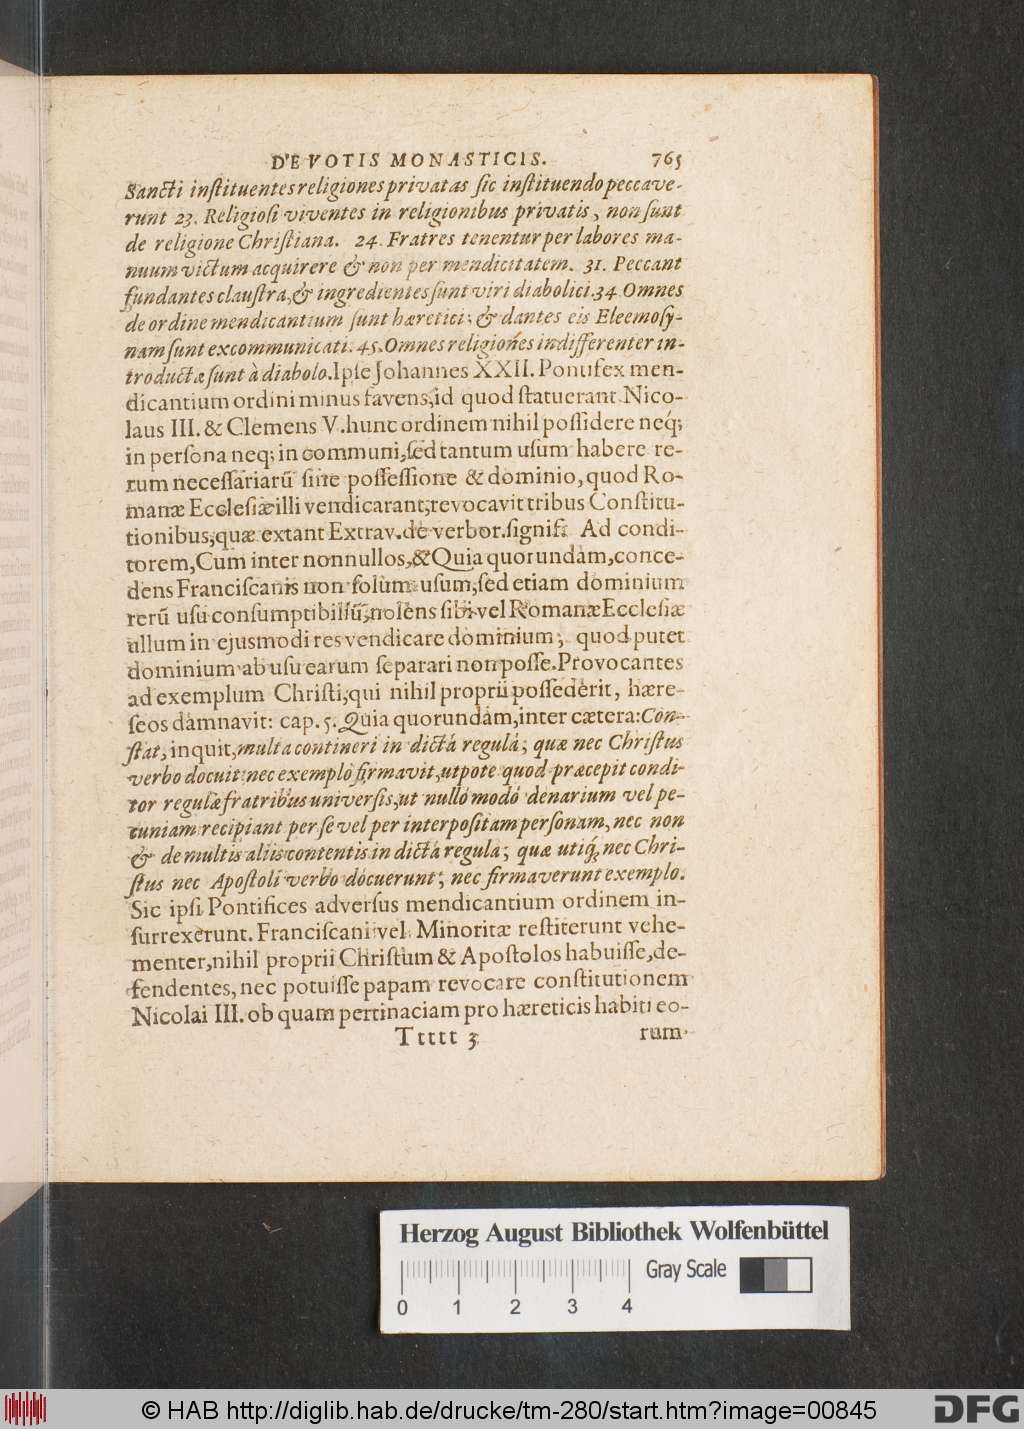 DE VOTIS MONASTICIS. 765
Sancti instituentes religiones privatas sic instituendo peccave-
runt 23. Religiosi viventes in religionibus privatis, non sunt
de religione Christiana. 24. Fratres tenentur per labores ma-
nuum victum acquirere & non per mendicitatem. 31. Peccant
fundantes claustra, & ingredientes sunt viri diabolici. 34 Omnes
de ordine mendicantium sunt hæretici; & dantes eis Eleemosy-
nam sunt excommunicati. 45. Omnes religiones indifferenter in-
troductæ sunt à diabolo. Ipse Johannes XXII. Pontifex men-
dicantium ordini minus favens, id quod statuerant Nico-
laus III. & Clemens V. hunc ordinem nihil possidere neq;
in persona neq; in communi, sed tantum usum habere re-
rum necessariarũ sine possessione & dominio, quod Ro-
manæ Ecclesiæ illi vendicarant, revocavit tribus Constitu-
tionibus, quæ extant Extrav. de verbor. signif. Ad condi-
torem, Cum inter nonnullos, & Quia quorundam, conce-
dens Franciscanis non solum usum, sed etiam dominium
rerũ usu consumptibiliũ, nolens sibi vel Romanæ Ecclesiæ
ullum in ejusmodi res vendicare dominium, quod putet
dominium ab usu earum separari non posse. Provocantes
ad exemplum Christi, qui nihil proprii possederit, hære-
seos damnavit: cap. 5. Quia quorundam, inter cætera: Con-
stat, inquit, multa contineri in dictá regulá; quæ nec Christus
verbo docuit nec exemplo firmavit, utpote quod præcepit condi-
tor regulæ fratribus universis, ut nullo modo denarium vel pe-
cuniam recipiant per se vel per interpositam personam, nec non
& de multis aliis contentis in dictá regula; quæ utiq; nec Chri-
stus nec Apostoli verbo docuerunt, nec firmaverunt exemplo.
Sic ipsi Pontifices adversus mendicantium ordinem in-
surrexerunt. Franciscani vel Minoritæ restiterunt vehe-
menter, nihil proprii Christum & Apostolos habuisse, de-
fendentes, nec potuisse papam revocare constitutionem
Nicolai III. ob quam pertinaciam pro hæreticis habiti eo-
Ttttt 3 rum
Herzog August Bibliothek Wolfenbüttel
Gray Scale
0 1 2 3 4
© HAB http://diglib.hab.de/drucke/tm-280/start.htm?image=00845
DFG